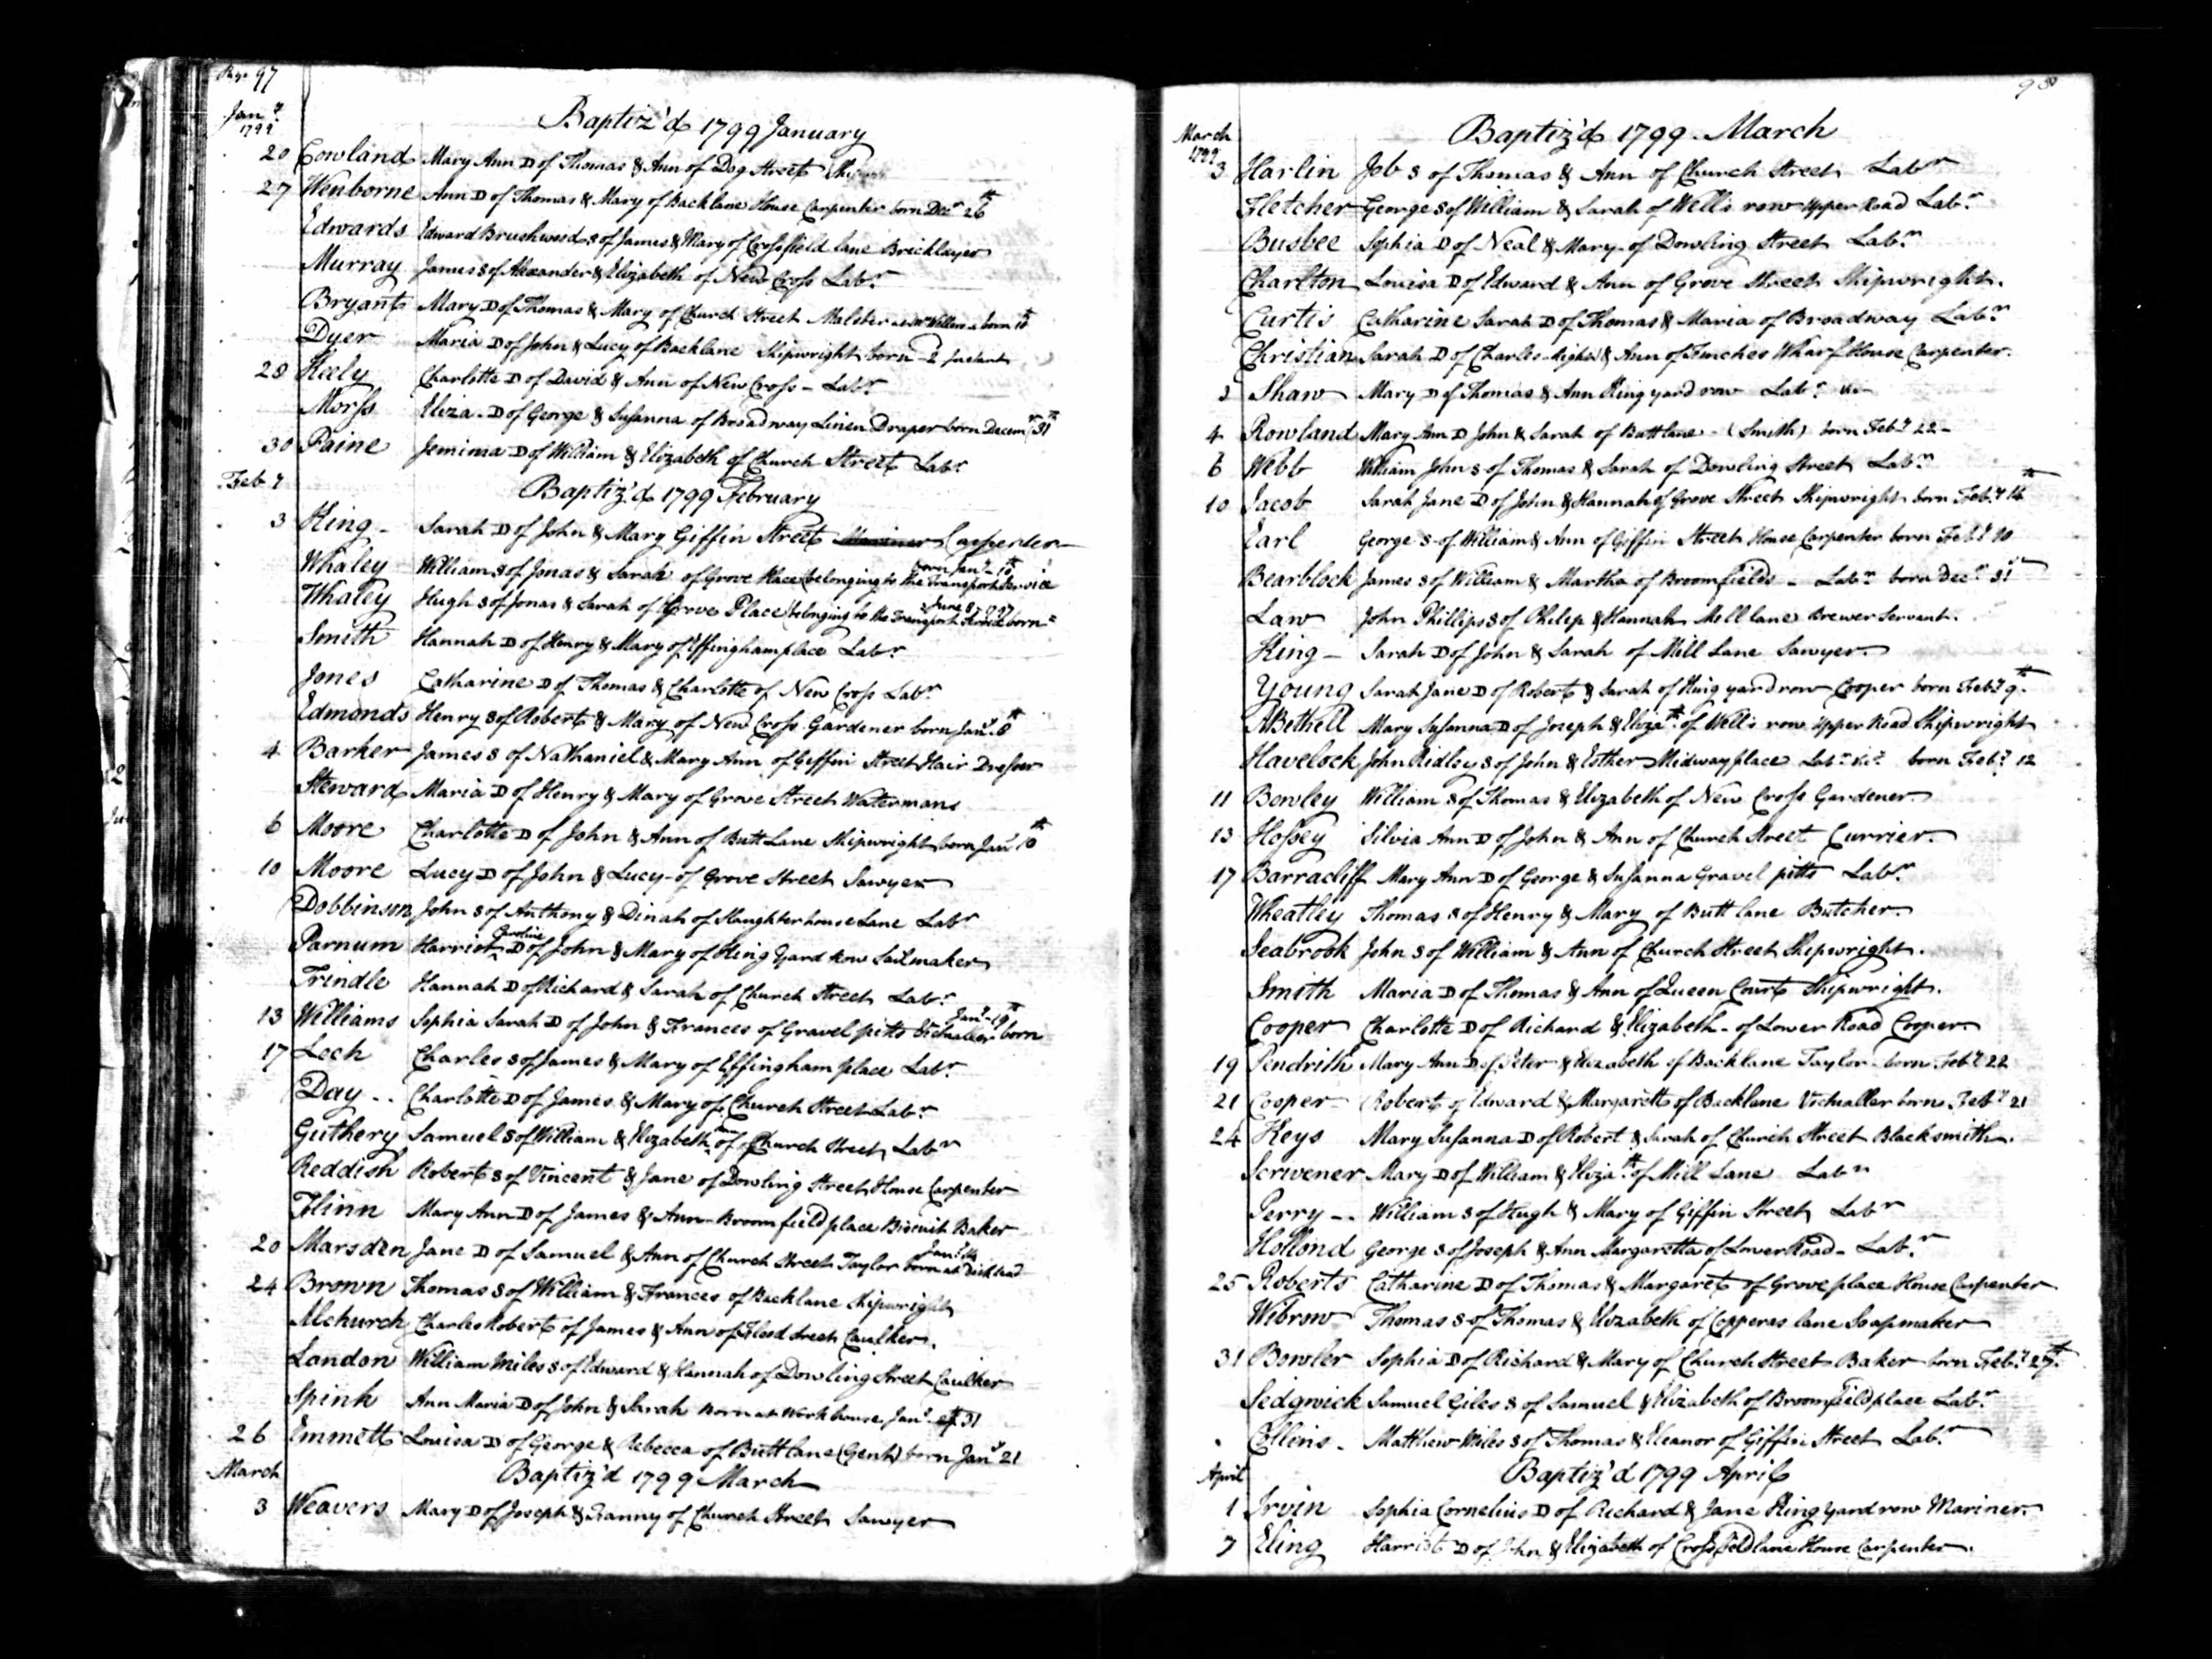 Page 97
Jany 1799
Baptiz'd 1799 January
20 Cowland Mary Ann D of Thomas & Ann of Dog Street
27 Wenborne Ann D of Thomas & Mary of Backlane House Carpenter born Decr 26th
Edwards Edward Brushwood s of James & Mary of Crossfield lane Bricklayer
Murray James s of Alexander & Elizabeth of New Cross Labr
Bryant Mary D of Thomas & Mary of Church Street Malster born 18th
Dyer Maria D of John & Lucy of Backlane Shipwright born 2 Instant
28 Keely Charlotte D of David & Ann of New Cross - Labr
Morss Eliza D of George & Susanna of Broadway Linen Draper born Decemr 31th
30 Paine Jemima D of William & Elizabeth of Church Street Labr
Feby
Baptiz'd 1799 February
3 King - Sarah D of John & Mary Giffin Street Mariner Carpenter
Whaley William s of Jonas & Sarah of Grove Place (belonging to the Transport Service born Jany 10
Whaley Hugh s of Jonas & Sarah of Grove Place (belonging to the Transport Service born June 8 1797
Smith Hannah D of Henry & Mary of Effingham place Labr
Jones Catharine D of Thomas & Charlotte of New Cross Labr
Edmonds Henry s of Robert & Mary of New Cross Gardener born Jany 8th
4 Barker James s of Nathaniel & Mary Ann of Giffin Street Hair Dresser
Steward Maria D of Henry & Mary of Grove Street Watermans
6 Moore Charlotte D of John & Ann of Butt Lane Shipwright born Jany 10th
10 Moore Lucy D of John & Lucy of Grove Street Sawyer
Dobbinson John s of Anthony & Dinah of Slaughterhouse Lane Labr
Parnum Harriot Caroline D of John & Mary of King Yard Row Sailmaker
Trindle Hannah D of Richard & Sarah of Church Street Labr
13 Williams Sophia Sarah D of John & Frances of Gravel pitts Victualler born Jany 19th
17 Lech Charles s of James & Mary of Effingham place Labr
Day - - Charlotte D of James & Mary of Church Street Labr
Guthery Samuel s of William & Elizabeth of Church Street Labr
Reddish Robert s of Vincent & Jane of Dowling Street House Carpenter
Flinn Mary Ann D of James & Ann - Broomfield place Biscuit Baker
20 Marsden Jane D of Samuel & Ann of Church Street Taylor born at Jany
24 Brown Thomas s of William & Frances of Backlane Shipwright
Alchurch Charles Robert of James & Ann of Flood Street Caulker
London William Miles s of Edward & Hannah of Dowling Street Caulker
Spink Ann Maria D of John & Sarah Born at Workhouse Jany 31
26 Emmett Louisa D of George & Rebecca of Butt lane (Gent) born Jany 21
March
Baptiz'd 1799 March
3 Weavers Mary D of Joseph & Fanny of Church Street Sawyer
98
March 1799
Baptiz'd 1799 March
3 Harlin Job s of Thomas & Ann of Church Street Labr
Fletcher George s of William & Sarah of Wells row Upper Road Labr
Busbee Sophia D of Neal & Mary of Dowling Street Labr
Charlton Louisa D of Edward & Ann of Grove Street Shipwright
Curtis Catharine Sarah D of Thomas & Maria of Broadway Labr
Christian Sarah D of Charles & Ann of Finches Wharf House Carpenter
3 Shaw Mary D of Thomas & Ann King yard row Labr
4 Rowland Mary Ann D John & Sarah of Buttlane - (Smith) born Feby 22
6 Webb William John s of Thomas & Sarah of Dowling Street Labr
10 Jacob Sarah Jane D of John & Hannah of Grove Street Shipwright born Feby 14th
Earl George s of William & Ann of Giffin Street House Carpenter born Feby 10
Bearblock James s of William & Martha of Broomfields - Labr born Decr 31st
Law John Phillips s of Philip & Hannah Mill lane Brewer Servant
King - Sarah D of John & Sarah of Mill Lane Sawyer
Young Sarah Jane D of Robert & Sarah of King yard row Cooper born Feby 9th
ABethell Mary Susanna D of Joseph & Elizath of Wells row Upper Road Shipwright
Havelock John Ridley s of John & Esther Midway place Labr born Feby 12
11 Bowley William s of Thomas & Elizabeth of New Cross Gardener
13 Hossey Silvia Ann D of John & Ann of Church Street Currier
17 Barracliff Mary Ann D of George & Susanna Gravel pitts Labr
Wheatley Thomas s of Henry & Mary of Butt lane Butcher
Seabrook John s of William & Ann of Church Street Shipwright
Smith Maria D of Thomas & Ann of Queen Court Shipwright
Cooper Charlotte D of Richard & Elizabeth - of Lower Road Cooper
19 Pendrith Mary Ann D of Peter & Elizabeth of Backlane Taylor born Feby 22
21 Cooper Robert of Edward & Margarett of Backlane Victualler born Feby 21
24 Keys Mary Susanna D of Robert & Sarah of Church Street Blacksmith
Scrivener Mary D of William & Elizath of Mill Lane Labr
Perry - - William s of Hugh & Mary of Giffin Street Labr
Hollond George s of Joseph & Ann Margaretta of Lower Road - Labr
25 Roberts Catharine D of Thomas & Margaret of Grove place House Carpenter
Wibrow Thomas s of Thomas & Elizabeth of Copperas lane Soapmaker
31 Bowler Sophia D of Richard & Mary of Church Street Baker born Feby 27th
Sedgwick Samuel Giles s of Samuel & Elizabeth of Broomfield place Labr
Collins - Matthew Miles s of Thomas & Eleanor of Giffin Street Labr
April
Baptiz'd 1799 April
1 Irvin Sophia Cornelius D of Richard & Jane King Yard row Mariner
7 Eling Harriot D of John & Elizabeth of Crossfield lane House Carpenter